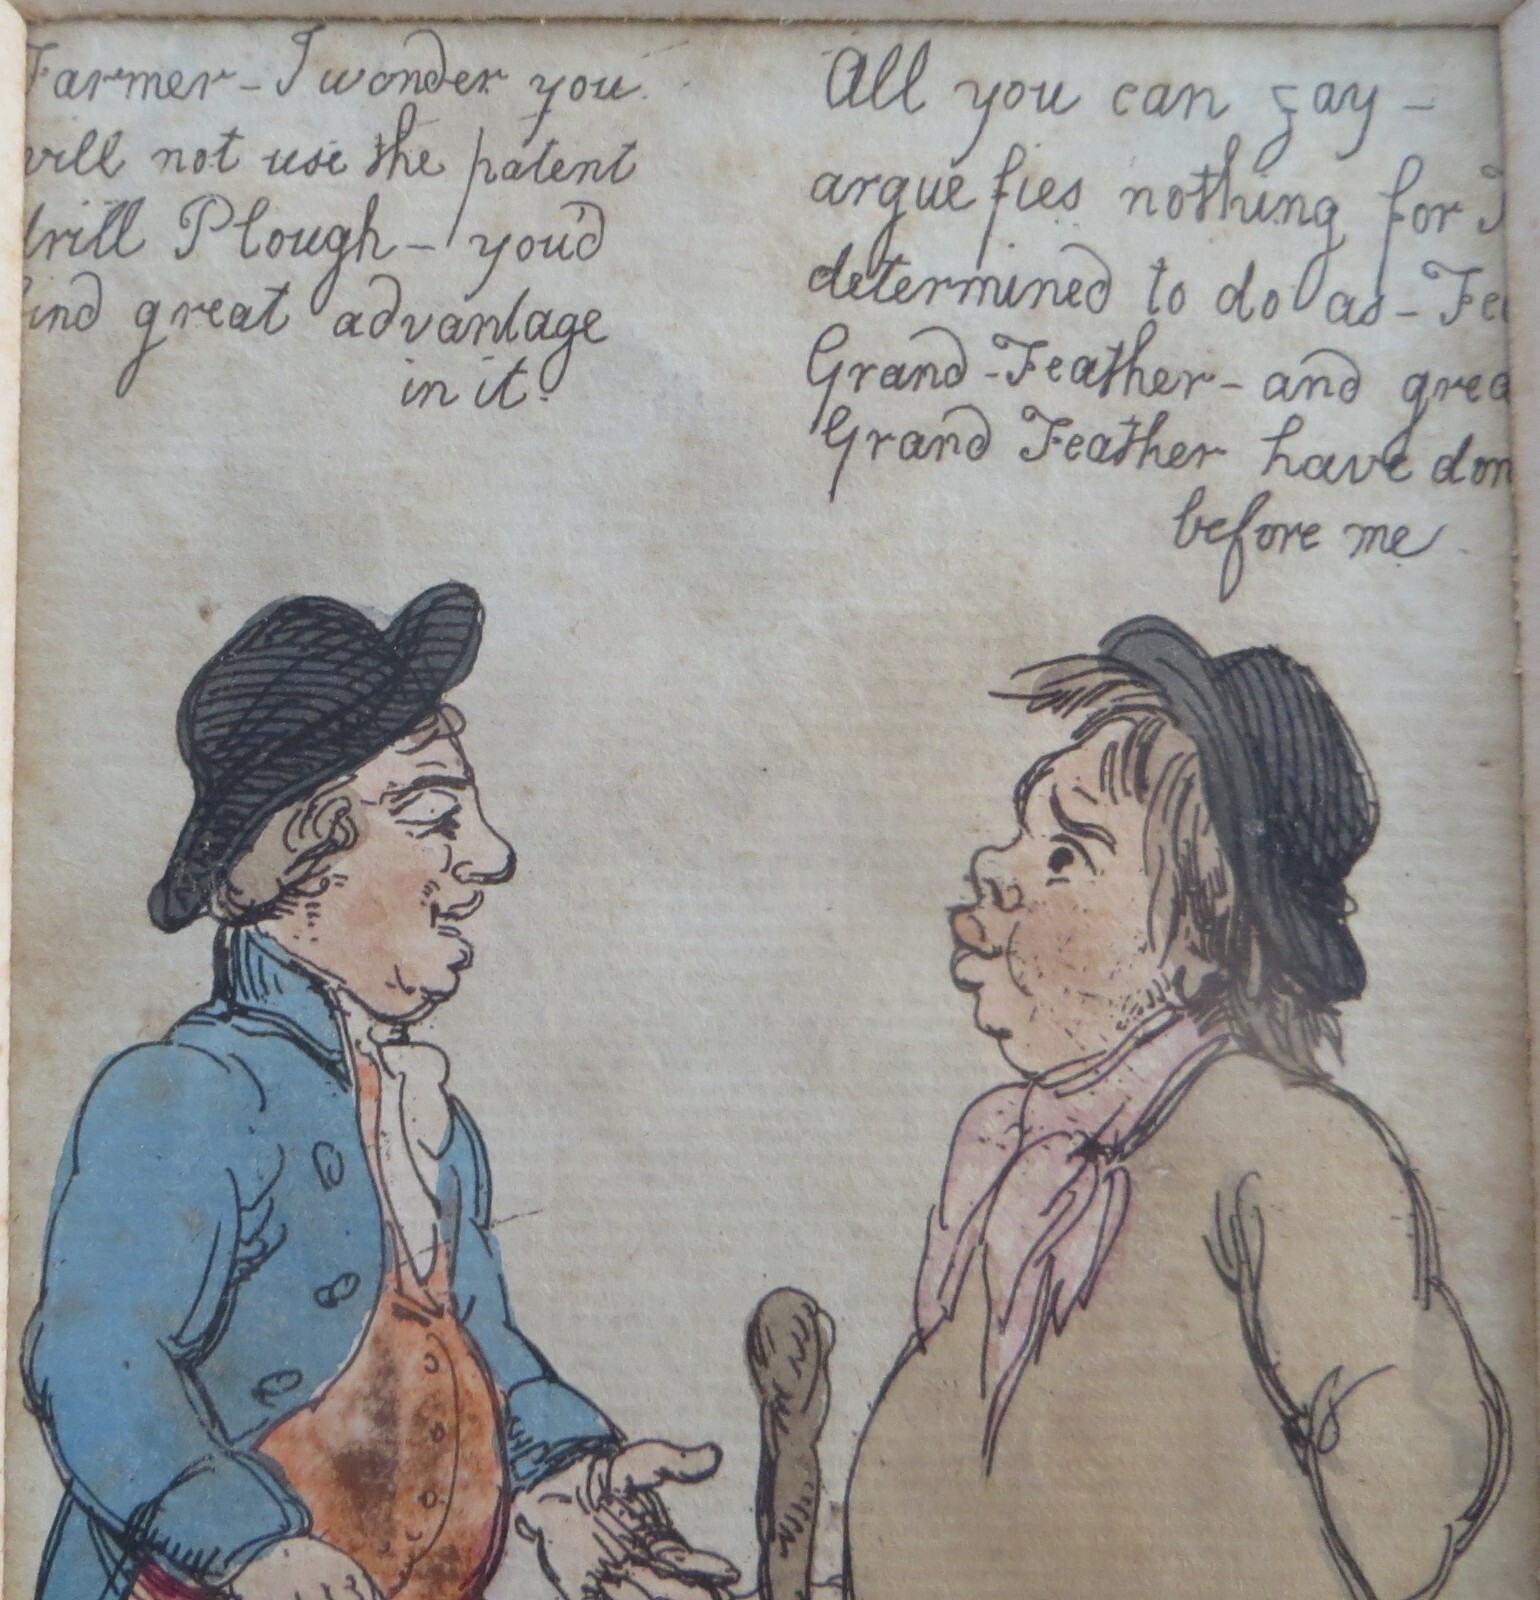 Farmer - I wonder you
will not use the patent
drill Plough - you'd
find great advantage
in it.
All you can zay -
arguefies nothing for I
determined to do as - Fe
Grand - Feather - and grea
Grand Feather have don
before me